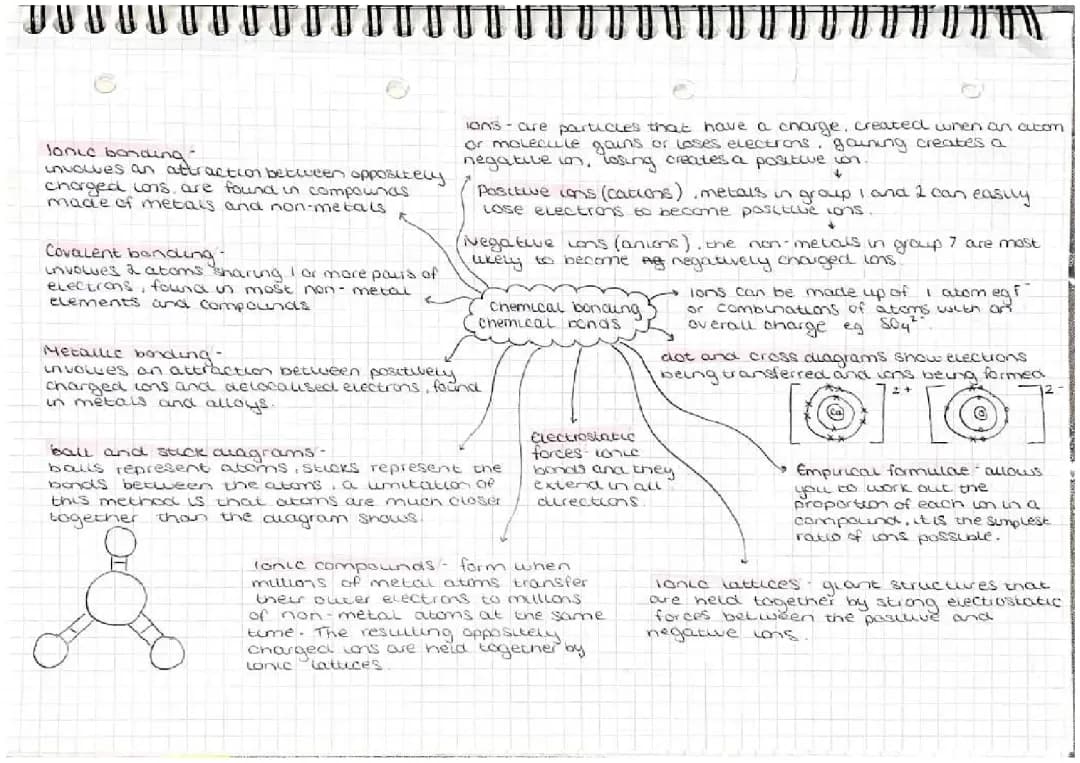 Ionic bonding -
involves an attraction between oppositely
charged ions. are found in compounds
made of metals and non-metals
Covalent bonding -
involves 2 atoms sharing 1 or more pairs of
electrons, found in most non-metal
elements and compounds
Metallic bonding -
involves an attraction between positively
charged ions and delocalised electrons, found
in metals and alloys.
ball and stick diagrams -
balls represent atoms, sticks represent the
bonds between the atoms, a limitation of
this method is that atoms are much closer
together than the diagram shows.
ions - are particles that have a charge. created when an atom
or molecule gains or loses electrons, gaining creates a
negative ion, losing creates a positive ion.
Positive ions (cations), metals in group 1 and 2 can easily
lose electrons to become positive ions.
Negative ions (anions), the non-metals in group 7 are most
likely to become negatively charged ions.
Chemical bonding
chemical bonds
ions can be made up of 1 atom eg F⁻
or combinations of atoms with an
overall charge eg SO₄²⁻
dot and cross diagrams show electrons
being transferred and ions being formed
Ca
2+
O
2-
Electrostatic
forces - ionic
bonds and they
extend in all
directions.
Empirical formulae - allows
you to work out the
proportion of each ion in a
compound, it is the simplest
ratio of ions possible.
ionic compounds - form when
millions of metal atoms transfer
their outer electrons to millions
of non-metal atoms at the same
time. The resulting oppositely
charged ions are held together by
ionic lattices.
ionic lattices - giant structures that
are held together by strong electrostatic
forces between the positive and
negative ions.